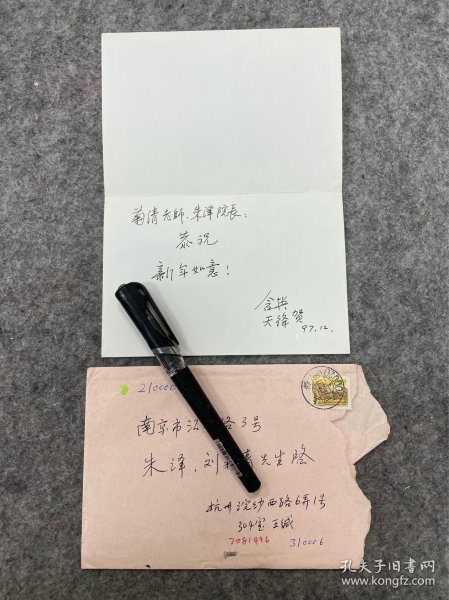 菊清老師、朱澤院長：
恭祝
新年如意！
贺
97.12.
210006
南京市 路3号
朱泽、刘 清先生启
杭州浣纱西路6弄1号
304室 王
7081496 310006
孔夫子旧书网
www.kongfz.com